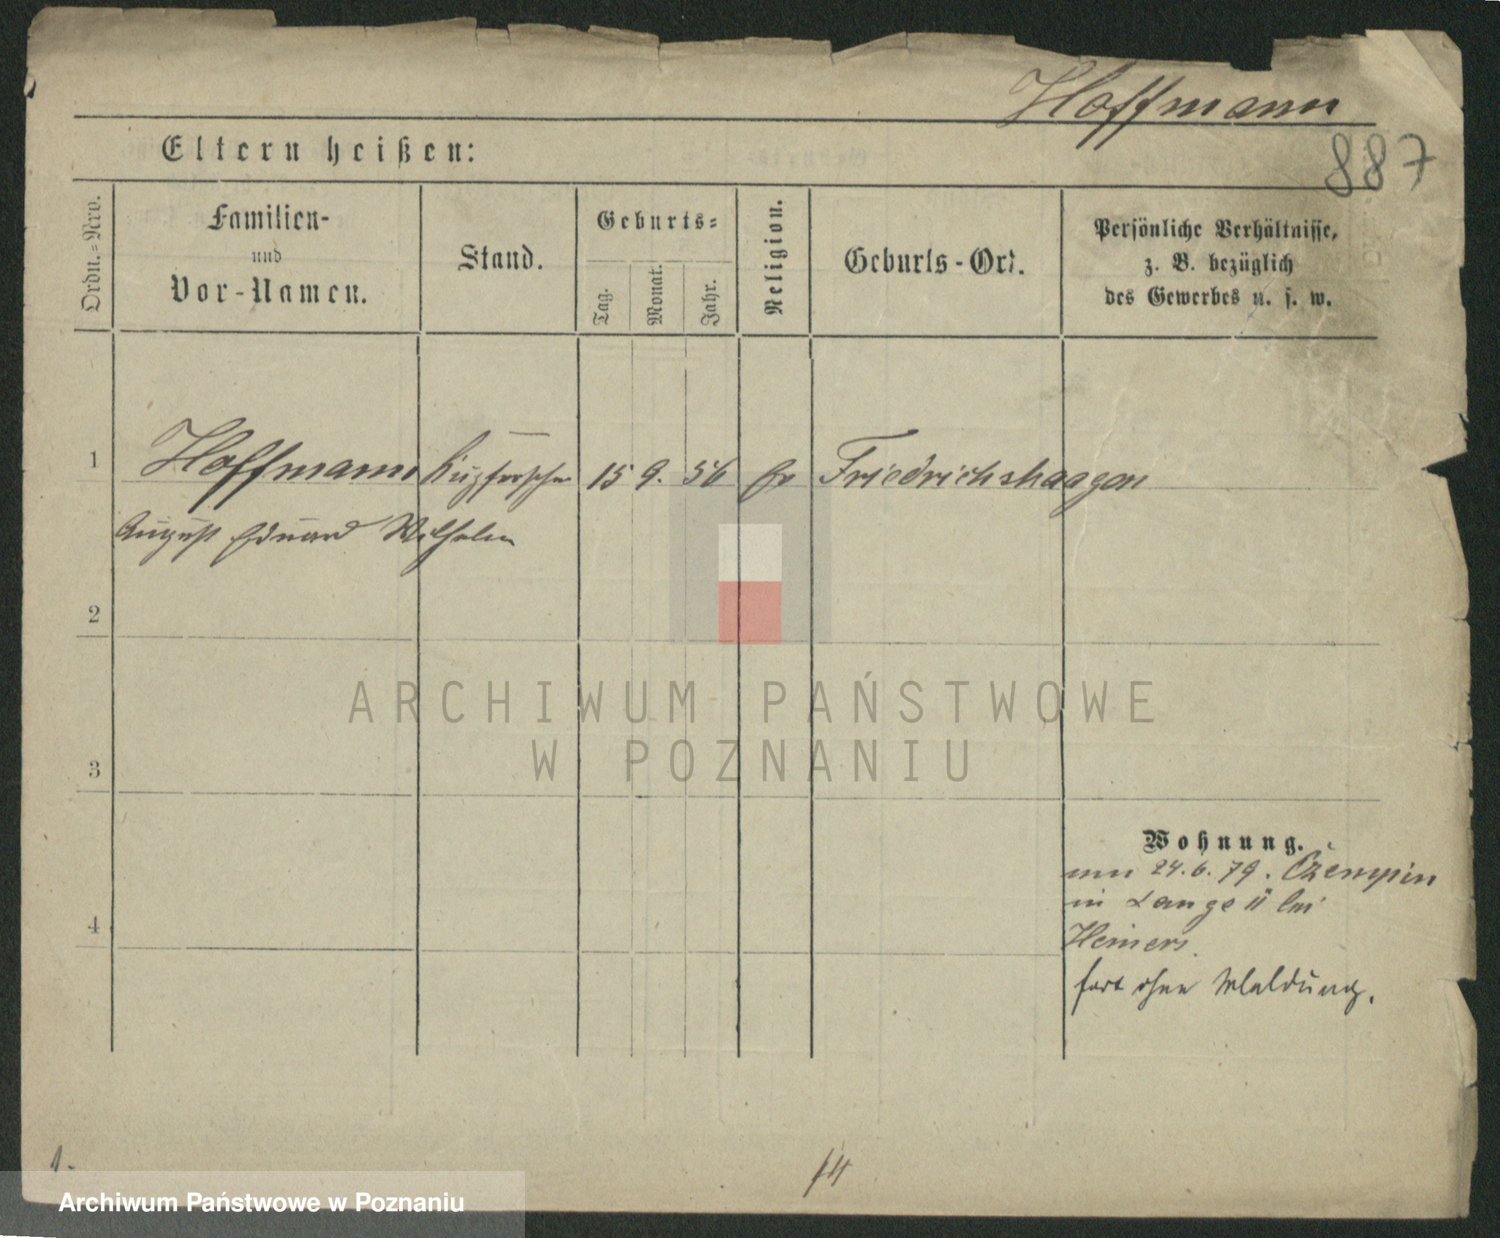 Hoffmann
887
Eltern heißen:
Ordn.=Nro.
Familien-
und
Vor-Namen.
Stand.
Geburts=
Tag.
Monat.
Jahr.
Religion.
Geburts-Ort.
Persönliche Verhältnisse,
z. B. bezüglich
des Gewerbes u. s. w.
1 Hoffmann 15 9. 56 Friedrichshaagen
August Eduard Wilhelm
2
ARCHIWUM PAŃSTWOWE
W POZNANIU
3
Wohnung.
24.6.79. Czempin
in Lange
4
Heiners.
fort ohne Meldung.
1.
14
Archiwum Państwowe w Poznaniu